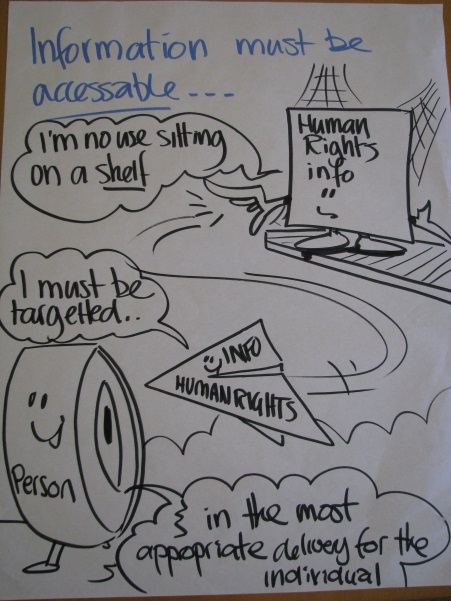 Information must be
accessable...
I'm no use sitting
on a shelf
Human
Rights
info
I must be
targetted..
INFO
HUMAN RIGHTS
Person
in the most
appropriate delivey for the
individual